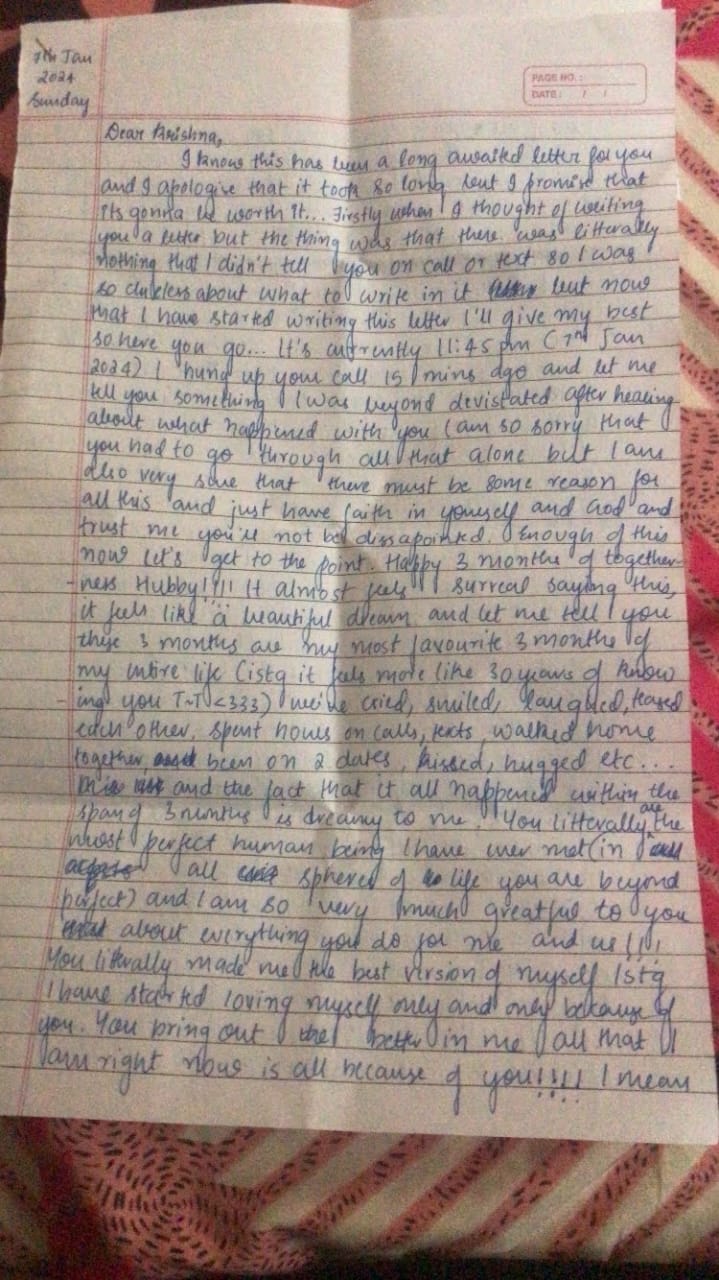 7th Jan
2024
Sunday
PAGE NO. :
DATE : / /
Dear Krishna,
I know this has been a long awaited letter for you
and I apologise that it took so long but I promise that
its gonna be worth it... Firstly when I thought of writing
you a letter but the thing was that there was litterally
nothing that I didn't tell you on call or text so I was
so clueless about what to write in it but now
that I have started writing this letter I'll give my best
so here you go... It's currently 11:45 pm (7th Jan
2024) I hung up your call 15 mins ago and let me
tell you something I was beyond devistated after hearing
about what happened with you I am so sorry that
you had to go through all that alone but I am
also very sure that there must be some reason for
all this and just have faith in yourself and God and
trust me you'll not be dissapointed. Enough of this
now let's get to the point. Happy 3 months of together-
-ness Hubby!!!! It almost feels surreal saying this,
it feels like a beautiful dream and let me tell you
these 3 months are my most favourite 3 months of
my entire life (istg it feels more like 30 years of know
-ing you T~T <333) we've cried, smiled, laughed, teased
each other, spent hours on calls, texts, walked home
together, been on 2 dates, kissed, hugged etc...
and the fact that it all happened within the
span of 3 months is dreamy to me. You litterally are the
most perfect human being I have ever met (in
all spheres of life you are beyond
perfect) and I am so very much greatful to you
about everything you do for me and us!!!!
You literally made me the best version of myself Istg
I have started loving myself only and only because of
you. You bring out the better in me all that I
am right now is all because of you!!!! I mean